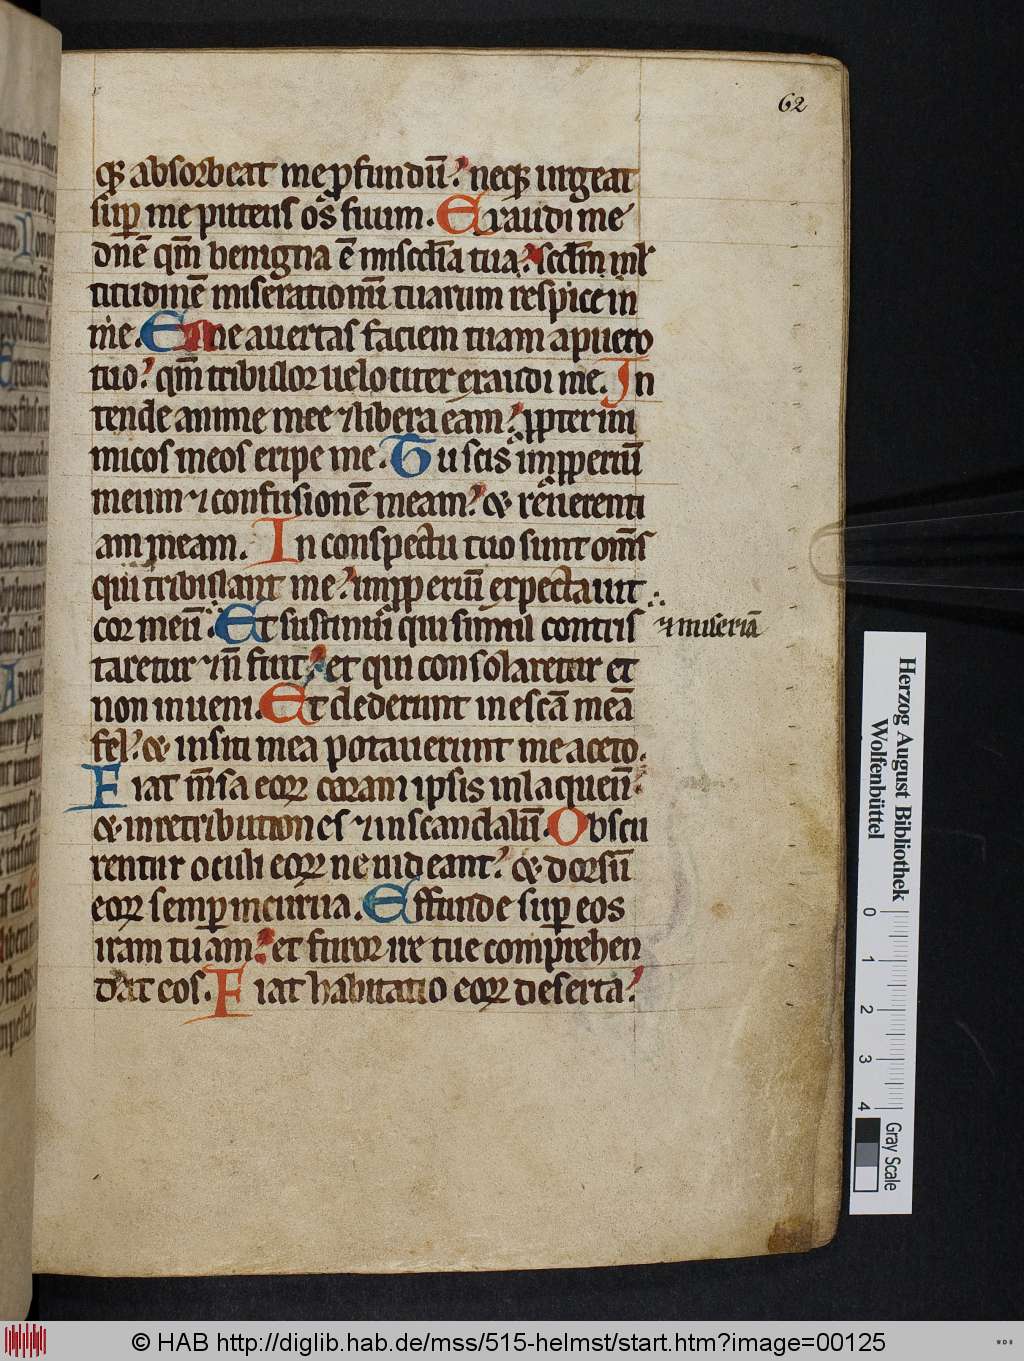 62
qꝫ absorbeat me ꝓfundū? neqꝫ urgeat
sup̄ me puteus os̄ suum. Exaudi me
dn̄e qm̄ benigna ē miscd̄ia tua? scd̄m ml̄
titudinē miserationū tuarum respice in
me. Et ne auertas faciem tuam a puero
tuo? qm̄ tribulor uelociter exaudi me. In
tende anime mee ⁊ libera eam? ꝓpter ini
micos meos eripe me. Tu scis imꝓperiū
meum ⁊ confusionē meam? & reuerenti
am meam. In conspectu tuo sunt om̄s
qui tribulant me? imꝓperiū expectauit
cor meū. Et sustinui qui simul contris
⁊ miseriā
taretur ⁊ n̄ fuit? et qui consolaretur et
non inueni. Et dederunt in escā meā
fel? & in siti mea potauerunt me aceto.
Fiat m̄sa eoꝝ coram ipsis in laqueū?
& in retributiones ⁊ in scandalū. Obscu
rentur oculi eoꝝ ne uideant? & dorsū
eoꝝ semp̄ incurua. Effunde sup̄ eos
iram tuam? et furor ire tue comprehen
dat eos. Fiat habitatio eoꝝ deserta?
Herzog August Bibliothek
Wolfenbüttel
0 1 2 3 4
Gray Scale
© HAB http://diglib.hab.de/mss/515-helmst/start.htm?image=00125